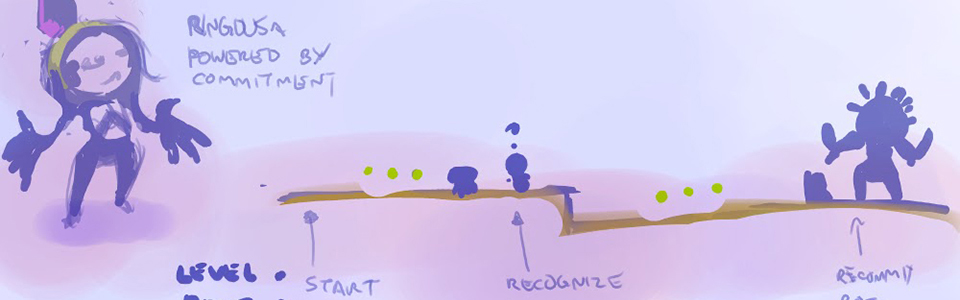 RINGOUSA
POWERED BY
COMMITMENT
LEVEL
START
RECOGNIZE
RECOMMIT